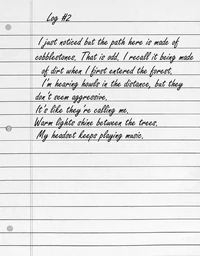 Log #2
I just noticed but the path here is made of
cobblestones. That is odd. I recall it being made
of dirt when I first entered the forest.
I'm hearing howls in the distance, but they
don't seem aggressive.
It's like they're calling me.
Warm lights shine between the trees.
My headset keeps playing music.